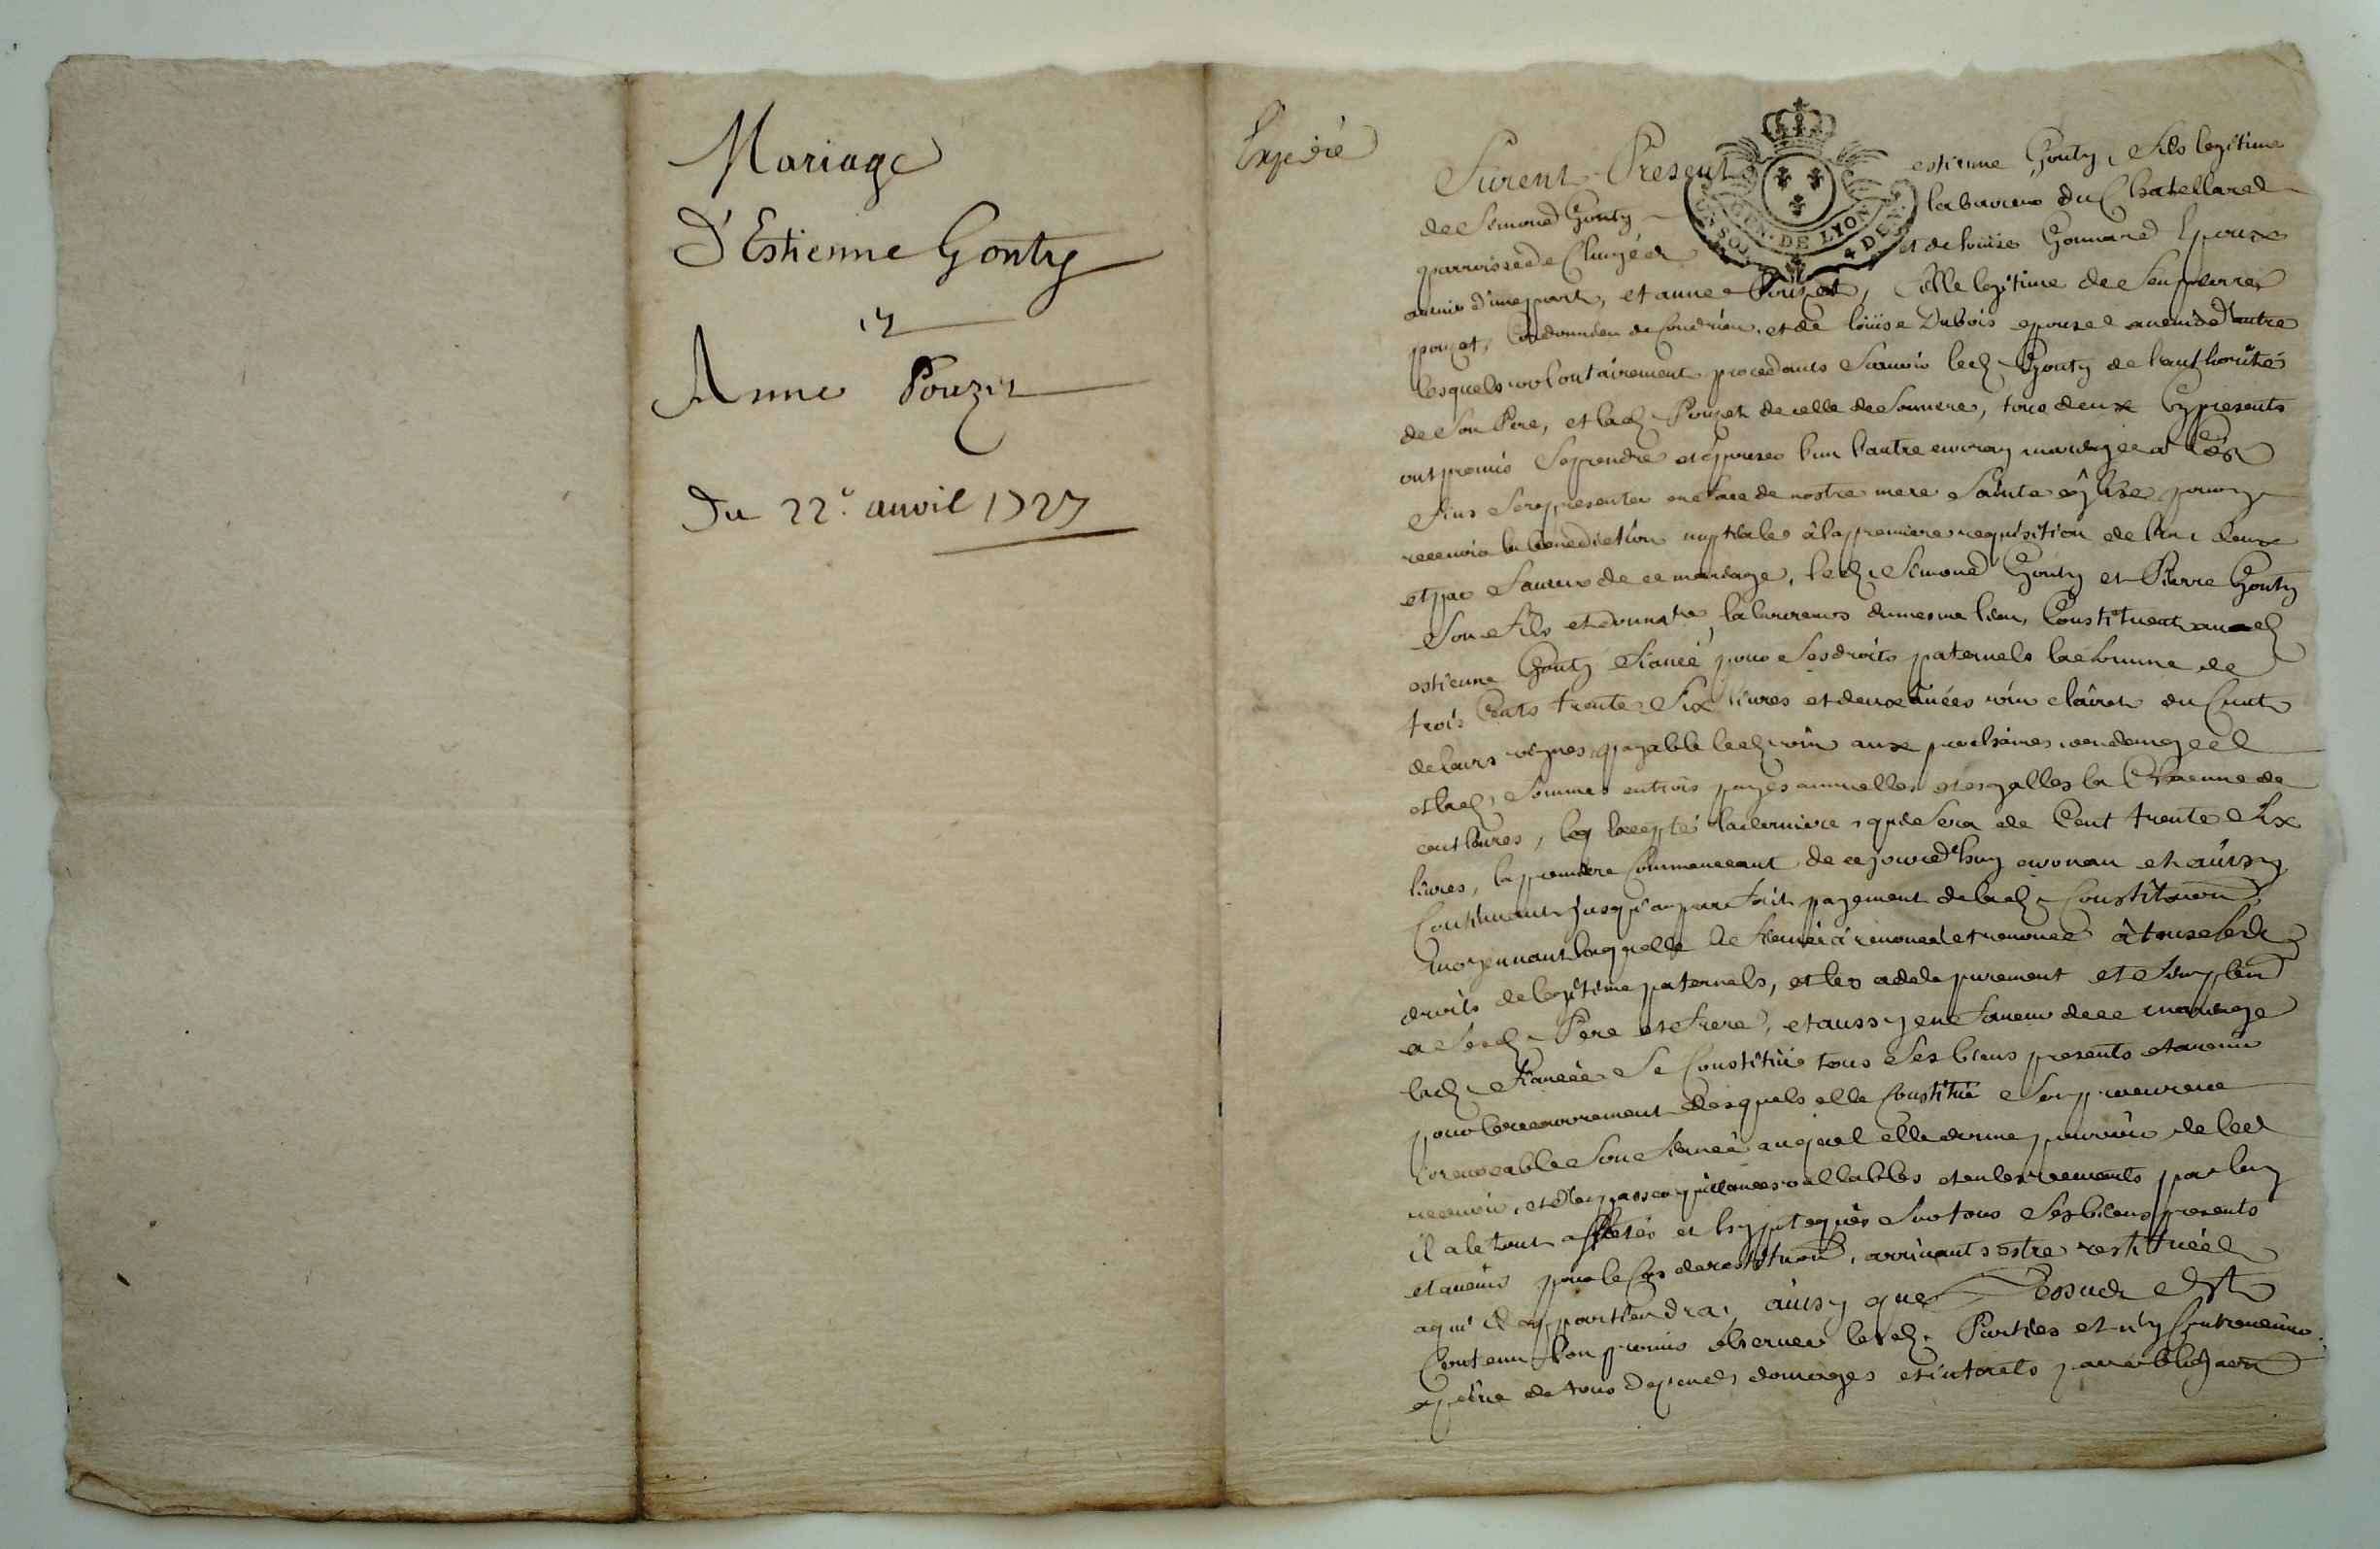 Mariage
D'Estienne Gonty
et
Anne Pouzet
Du 22e. auvil 1727
Expedié
Furent Present estienne Gonty, fils legitime
de Simond Gonty laboureur du Chatellared
parroisse de et de loüise Gounard Epouxe
auenir d'une part, et anne Pouzet, fille legitime de feu pierre
pouzet, Cordonnier de Condrieu, et de loüise Dubois epouse auenir d'autre
lesquels volontairement procedants scauoir led. Gonty de l'authorité
de son Pere, et lad. Pouzet de celle de sa mere, tous deux Cy presents
ont promis se prendre et Epouser l'un l'autre en vray mariage a Ces
fins se representer en face de nostre mere Sainte eglise pour y
receuoir la benediction nuptiale à la premiere requisition de l'un d'eux
et par faueur de ce mariage, led. Simond Gonty et Pierre Gonty
son fils et donnatre, laboureurs du mesme lieu, Constituent aud.
estienne Gonty fiancé pour ses droits paternels la somme de
trois Cents trente Six liures et deux anées vin clairet du Cruit
de leurs vignes, payable led. vin aux prochaines vendanges
et lad. sommes en trois payes annuelles et esgalles la Chacune de
cent liures, Excepté la derniere, qui sera de Cent trente Six
liures, la premiere Commenceant de ce jourd'huy en un an et ainsy
Continuant jusqu'au parfait payement de lad. Constitution,
moyennant laquelle le fiancé a renoncé et renonce à tous sesd.
droits de legitime paternels, et les a cede purement et simplem.
a sesd. Pere et frere, et aussy en faueur de ce mariage
lad. fiancée se Constitüe tous ses biens presents et auenir
pour le recouvrement desquels elle Constitüe son procureur
irreuocable son fiancé auquel elle donne pouuoir de les
receuoir, et d'en passer quittances vallables et en les receuants par luy
il a le tout affetés et hypoteqüés sur tous ses biens presents
et auenir pour le Cas de restitution, arriuant estre restituée
a qui il appartiendra, ainsy que Dessus est
Contenu l'on promis obseruer lesd. Parties et n'y Contreuenir
a peine de tous Depends, domages et interets par obligation